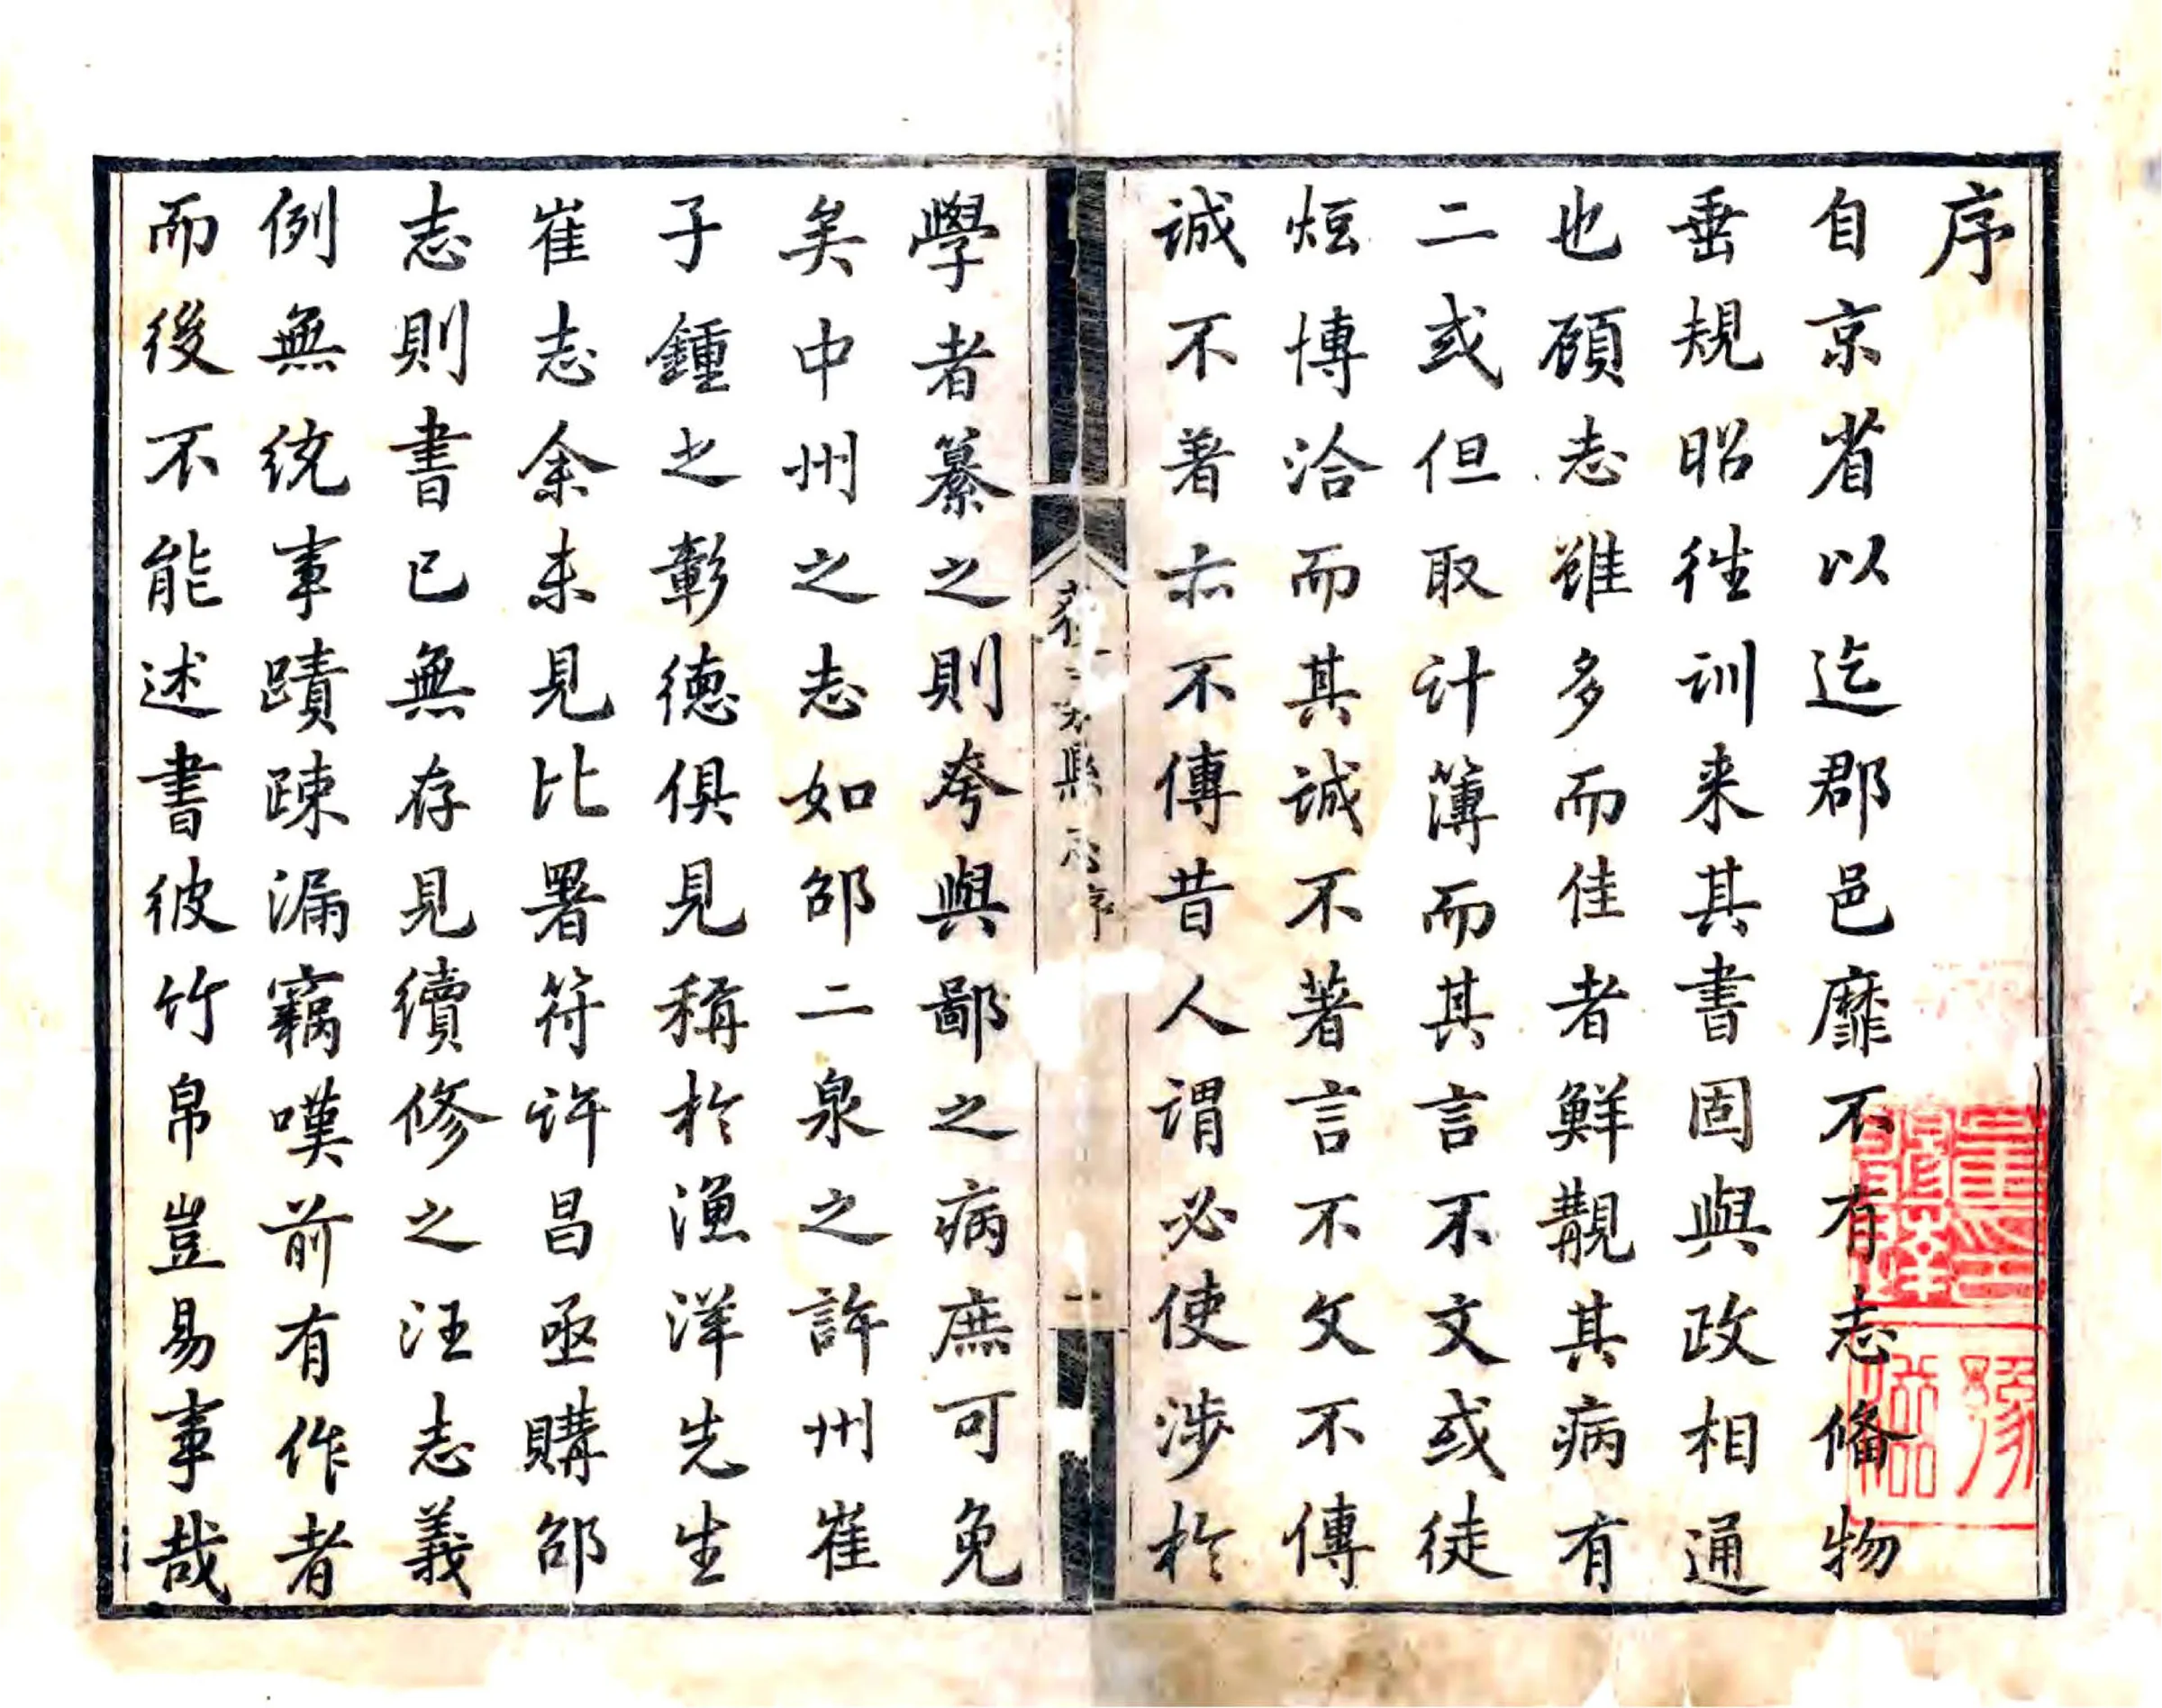 序
自京省以迄郡邑靡不有志俻物
垂規昭徃訓来其書固與政相通
也顧志雖多而佳者鮮覯其病有
二或但取计簿而其言不文或徒
烜博洽而其诚不著言不文不傳
诚不著亦不傳昔人谓必使涉於
學者纂之則夸與鄙之病庶可免
矣中州之志如邵二泉之許州崔
子鍾之彰德俱見稱於漁洋先生
崔志余未見比署符许昌亟購邵
志則書已無存見續修之汪志義
例無統事蹟疎漏竊嘆前有作者
而後不能述書彼竹帛豈易事哉
縣志序
一